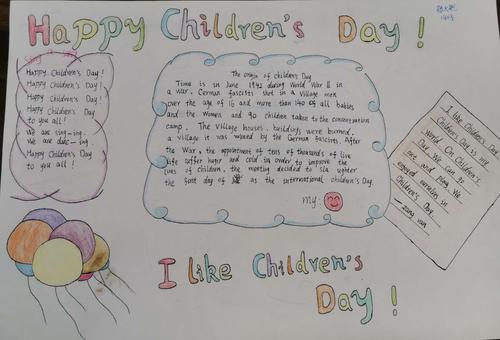 Happy Children's Day!
Happy Children's Day!
Happy Children's Day!
Happy Children's Day!
Happy Children's Day
to you all!
We are sing-ing.
We are danc-ing.
Happy Children's Day
to you all!
The origin of children's Day
Time is in June 1942 during World War II in
a war. German fascists shot in a village men
over the age of 16 and more than 140 all babies
and the women and 90 children taken to the concentration
camp. The village houses, buildings were burned,
a village it was ruined by the German fascists. After
the War, the appointment of tens of thousands of
life suffer huger and cold in order to improve the
lives of children, the meeting decided to sla ughter
the day of as the international children's Day.
my:
I like Children's Day
Children's Day is my
world. On Children's
Day. We can go
out and play. We
enjoyed ourselves in
Children's Day
I like Children's
Day!